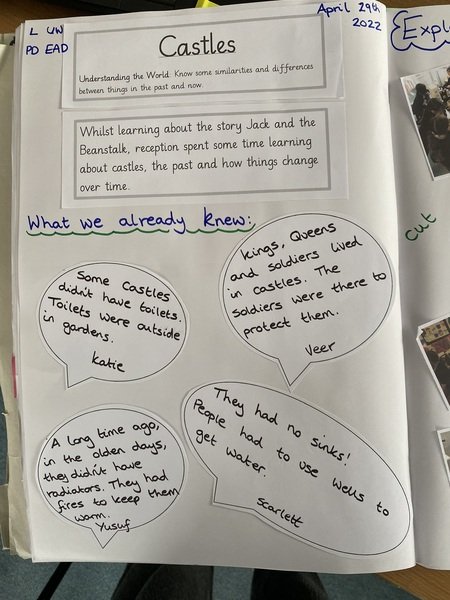 L UW
PD EAD
April 29th
2022
Castles
Understanding the World: Know some similarities and differences
between things in the past and now.
Whilst learning about the story Jack and the
Beanstalk, reception spent some time learning
about castles, the past and how things change
over time.
What we already knew:
Some Castles
didn't have toilets.
Toilets were outside
in gardens.
Katie
Kings, Queens
and soldiers lived
in castles. The
soldiers were there to
protect them.
Veer
A long time ago,
in the olden days,
they didn't have
radiators. They had
fires to keep them
warm.
Yusuf
They had no sinks!
People had to use wells to
get water.
Scarlett
cut